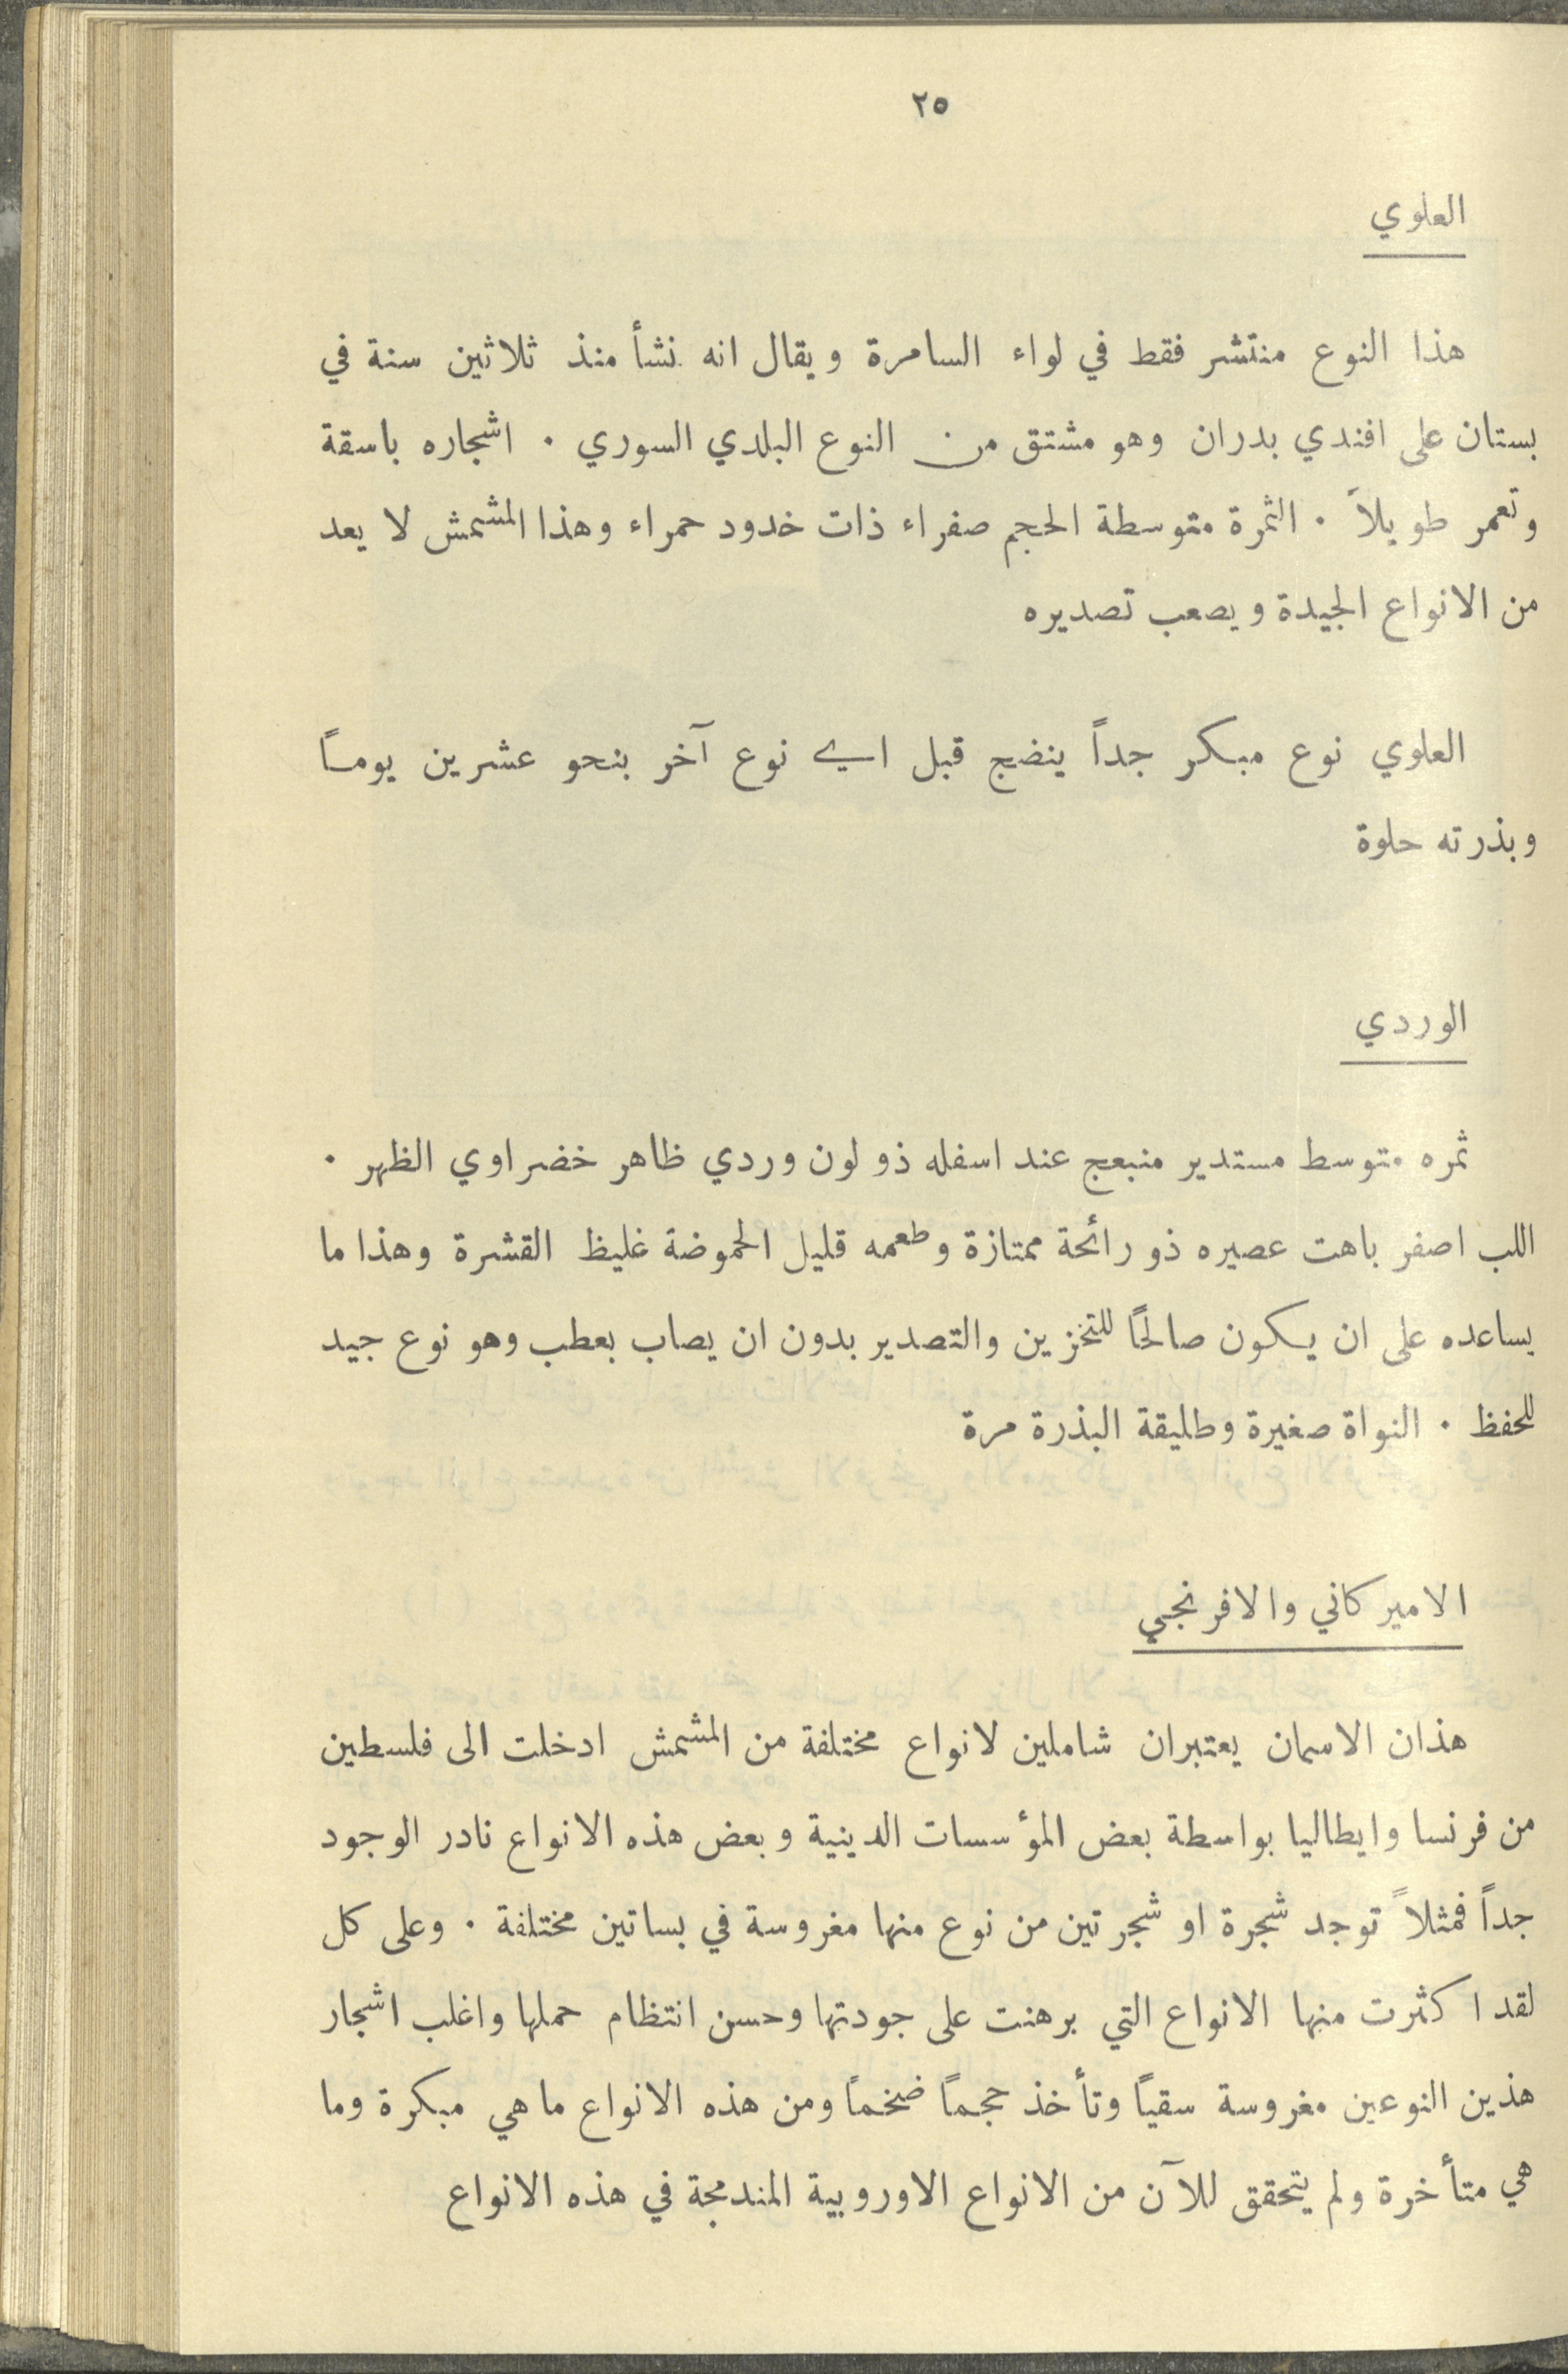 ٢٥
العلوي
هذا النوع منتشر فقط في لواء السامرة ويقال انه نشأ منذ ثلاثين سنة في
بستان على افندي بدران وهو مشتق من النوع البلدي السوري . اشجاره باسقة
وتعمر طويلاً . الثمرة متوسطة الحجم صفراء ذات خدود حمراء وهذا المشمش لا يعد
من الانواع الجيدة ويصعب تصديره
العلوي نوع مبكر جداً ينضج قبل اي نوع آخر بنحو عشرين يوماً
وبذرته حلوة
الوردي
ثمره متوسط مستدير منبعج عند اسفله ذو لون وردي ظاهر خضراوي الظهر .
اللب اصفر باهت عصيره ذو رائحة ممتازة وطعمه قليل الحموضة غليظ القشرة وهذا ما
يساعده على ان يكون صالحاً للتخزين والتصدير بدون ان يصاب بعطب وهو نوع جيد
للحفظ . النواة صغيرة وطليقة البذرة مرة
الاميركاني والافرنجي
هذان الاسمان يعتبران شاملين لانواع مختلفة من المشمش ادخلت الى فلسطين
من فرنسا وايطاليا بواسطة بعض المؤسسات الدينية وبعض هذه الانواع نادر الوجود
جداً فمثلاً توجد شجرة او شجرتين من نوع منها مغروسة في بساتين مختلفة . وعلى كل
لقد اكثرت منها الانواع التي برهنت على جودتها وحسن انتظام حملها واغلب اشجار
هذين النوعين مغروسة سقياً وتأخذ حجماً ضخماً ومن هذه الانواع ما هي مبكرة وما
هي متأخرة ولم يتحقق للآن من الانواع الاوروبية المندمجة في هذه الانواع